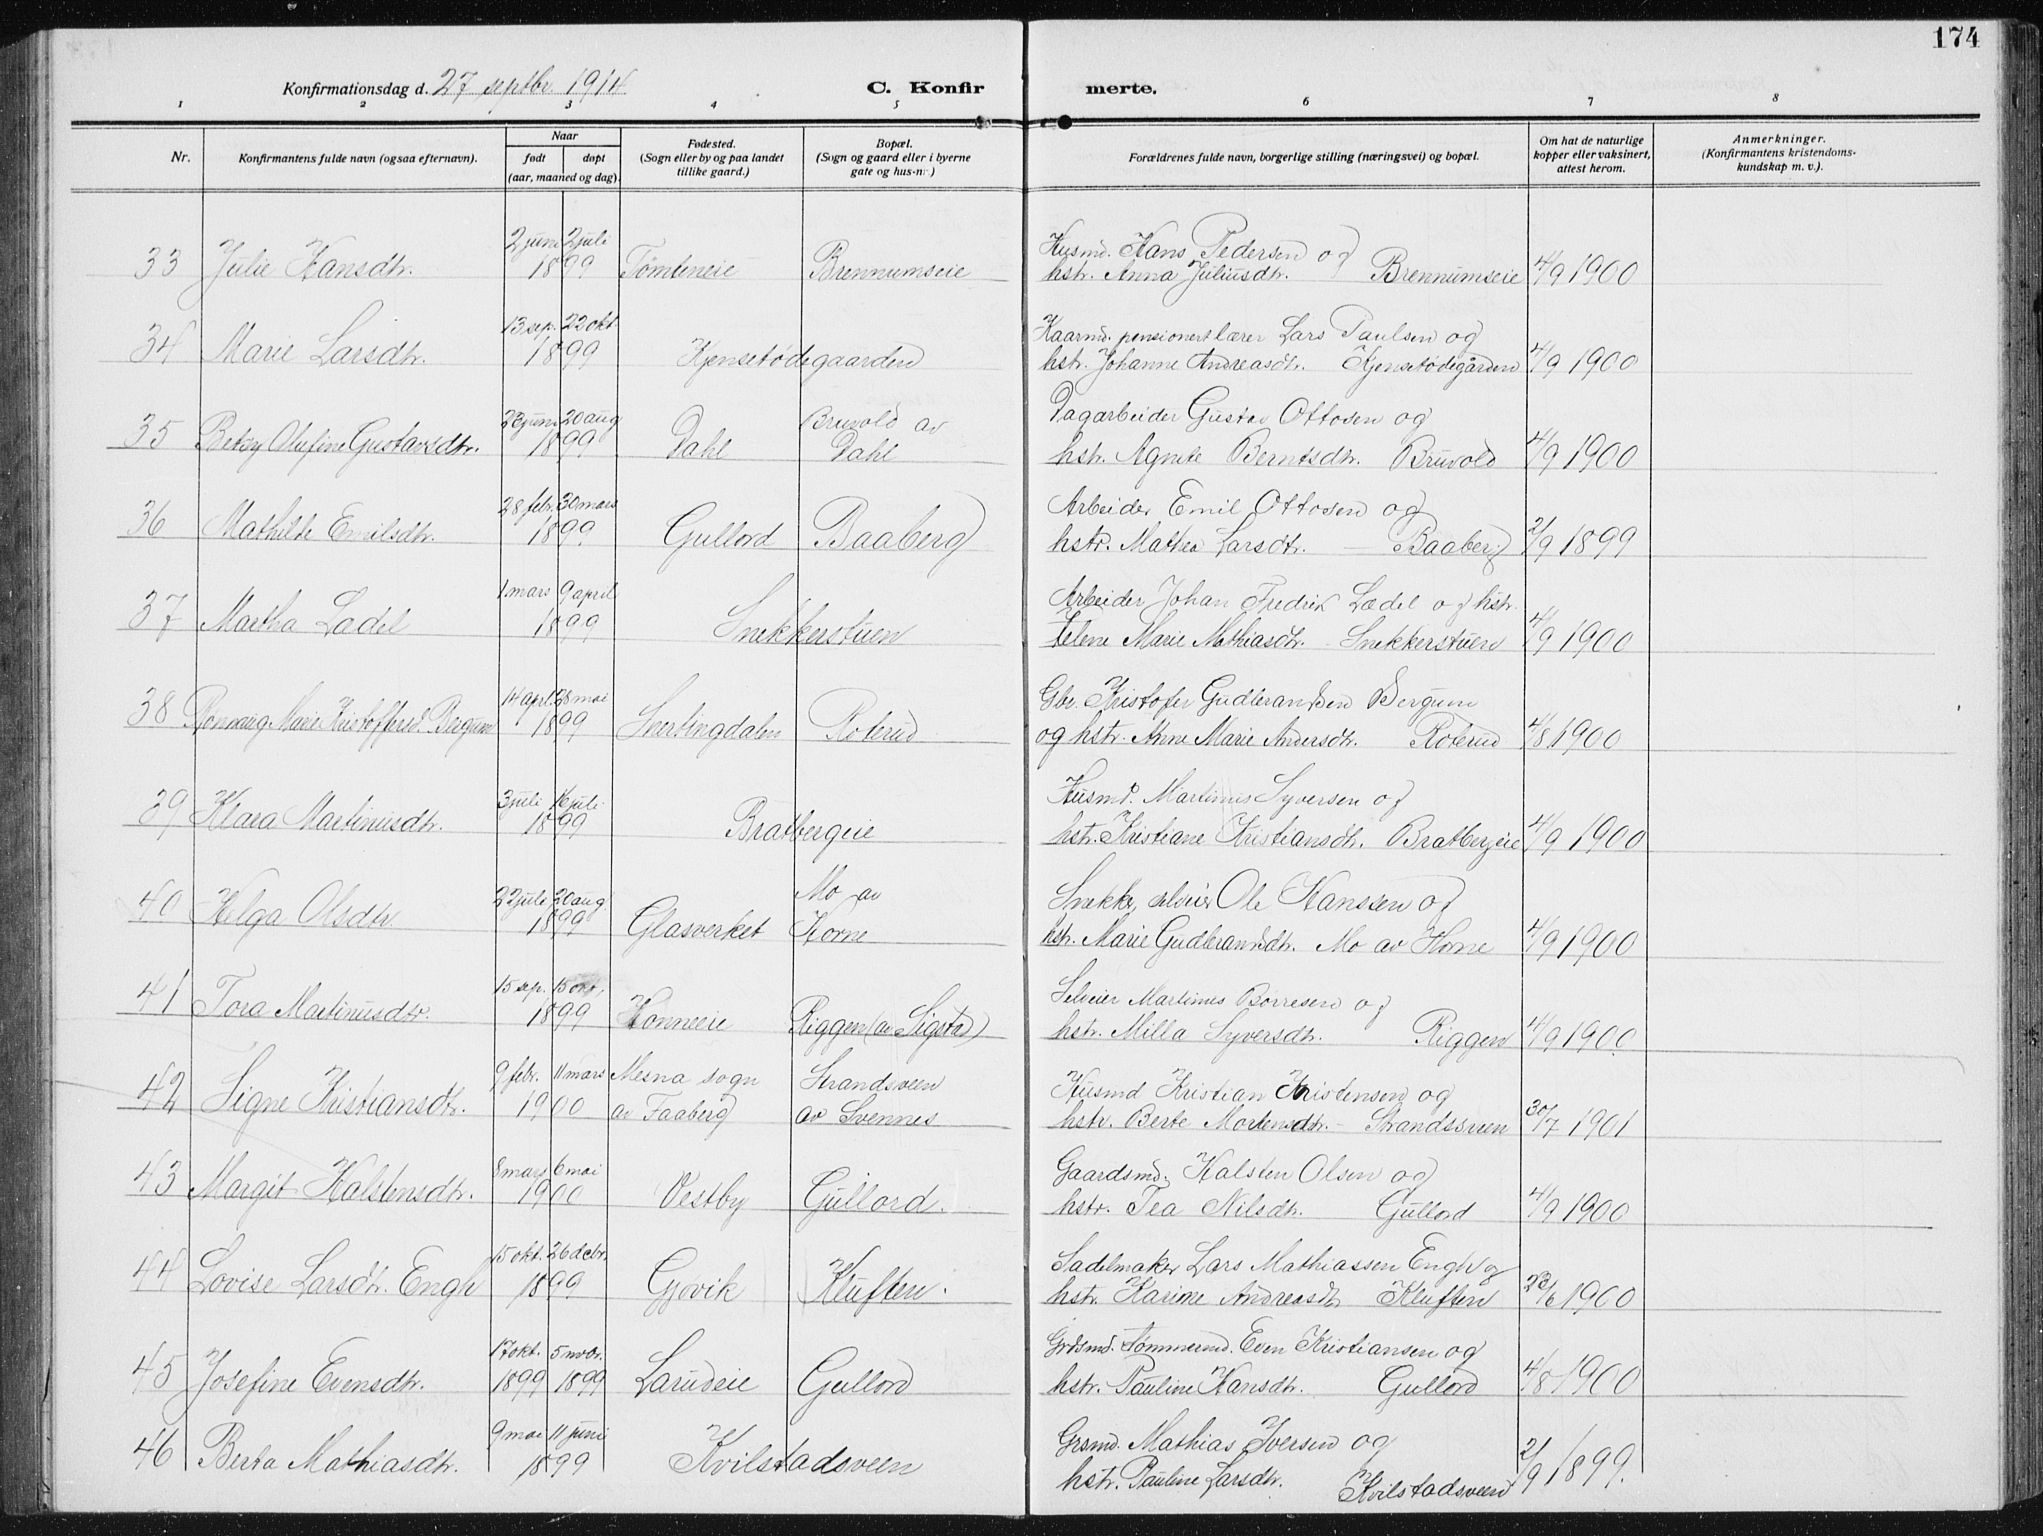 174
Konfirmationsdag d. 27 septbr. 1914
C. Konfir merte.
1 2 3 4 5 6 7 8
Nr. Konfirmantens fulde navn (ogsaa efternavn). Naar født døpt (aar, maaned og dag). Fødested. (Sogn eller by og paa landet tillike gaard.) Bopæl. (Sogn og gaard eller i byerne gate og hus-nr.) Forældrenes fulde navn, borgerlige stilling (næringsvei) og bopæl. Om hat de naturlige kopper eller vaksinert, attest herom. Anmerkninger. (Konfirmantens kristendoms- kundskap m. v.).
2 juni 2 juli Husmd. Hans Pedersen og
33 Julie Hansdtr. 1899 Tömteneie Brennumseie hstr. Anna Juliusdtr. Brennumseie 4/9 1900
13 sep. 22 okt. Kaarmd. pensionert lærer Lars Paulsen og
34 Marie Larsdtr. 1899 Kjensetødegaarden hstr. Johanne Andreasdtr. Kjensetødegården 4/9 1900
23 juni 20 aug Bruvold av Dagarbeider Gustav Ottosen og
35 Betsy Olufine Gustavsdtr. 1899 Dahl Dahl hstr. Agnete Berntsdtr. Bruvold 4/9 1900
28 febr. 30 mars Arbeider Emil Ottosen og
36 Mathilde Emilsdtr. 1899 Gullord Baaberg hstr. Mathea Larsdtr. Baaberg 2/9 1899
1 mars 9 april Arbeider Johan Fredrik Ladel og hstr.
37 Martha Ladel 1899 Snekkerstuen Helene Marie Mathiasdtr. Snekkerstuen 4/9 1900
14 apr. 28 mai Gbr. Kristofer Gudbrandsen Bergum
38 Rønnaug Marie Kristoffersd. Bergum 1899 Snertingdalen Roterud og hstr. Anne Marie Andersdtr. Roterud 4/8 1900
3 juli 16 juli Husmd. Martinus Syversen og
39 Klara Martinusdtr. 1899 Bratbergeie hstr. Kristiane Kristiansdtr. Bratbergeie 4/9 1900
22 juli 20 aug. Mo av Snekker, selveier Ole Hanssen og
40 Helga Olsdtr 1899 Glasverket Horne hstr. Marie Gudbrandsdtr. Mo av Horne 4/9 1900
15 sep. 15 okt. Selveier Martinus Borresen og
41 Tora Martinusdtr. 1899 Honneeie Riggen (av Sigstad) hstr. Milla Syversdtr. Riggen 4/9 1900
9 febr. 11 mars Mesna sogn Strandsveen Husmd Kristian Kristensen og
42 Signe Kristiansdtr. 1900 av Faaberg av Svennes hstr. Berte Mortensdtr. - Strandsveen 30/7 1901
8 mars 6 mai Gaardsmd. Halsten Olsen og
43 Margit Halstensdtr. 1900 Vestby Gullord. hstr. Tea Nilsdtr. Gullord 4/9 1900
15 okt. 26 debr. Sadelmaker Lars Mathiassen Engh og
44 Lovise Larsdtr. Engh 1899 Gjøvik Kluften. hstr. Karine Andreasdtr Kluften 23/6 1900
17 okt. 5 novbr. Grdsmd. Tømmermd. Even Kristiansen og
45 Josefine Evensdtr. 1899 1899 Larudeie Gullord hstr. Pauline Hansdtr. Gullord 4/8 1900
9 mai 11 juni Grsmd. Mathias Iversen og
46 Berta Mathiasdtr. 1899 Kvilstadsveen hstr. Pauline Larsdtr. Kvilstadsveen 2/9 1899.